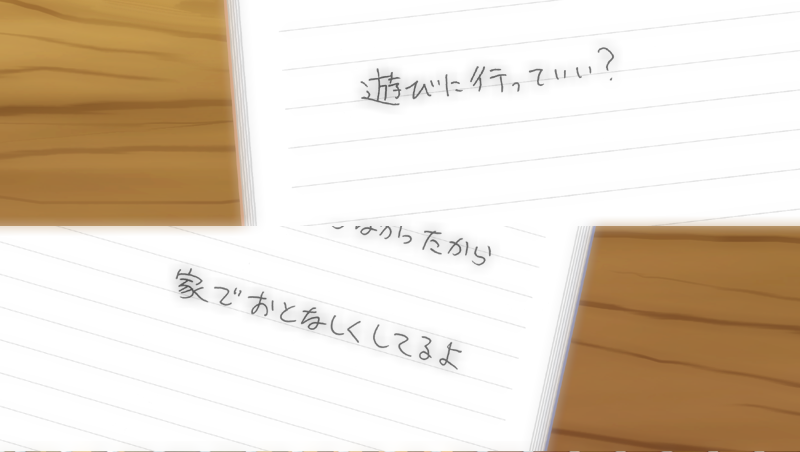 遊びに行っていい?
なかったから
家でおとなしくしてるよ